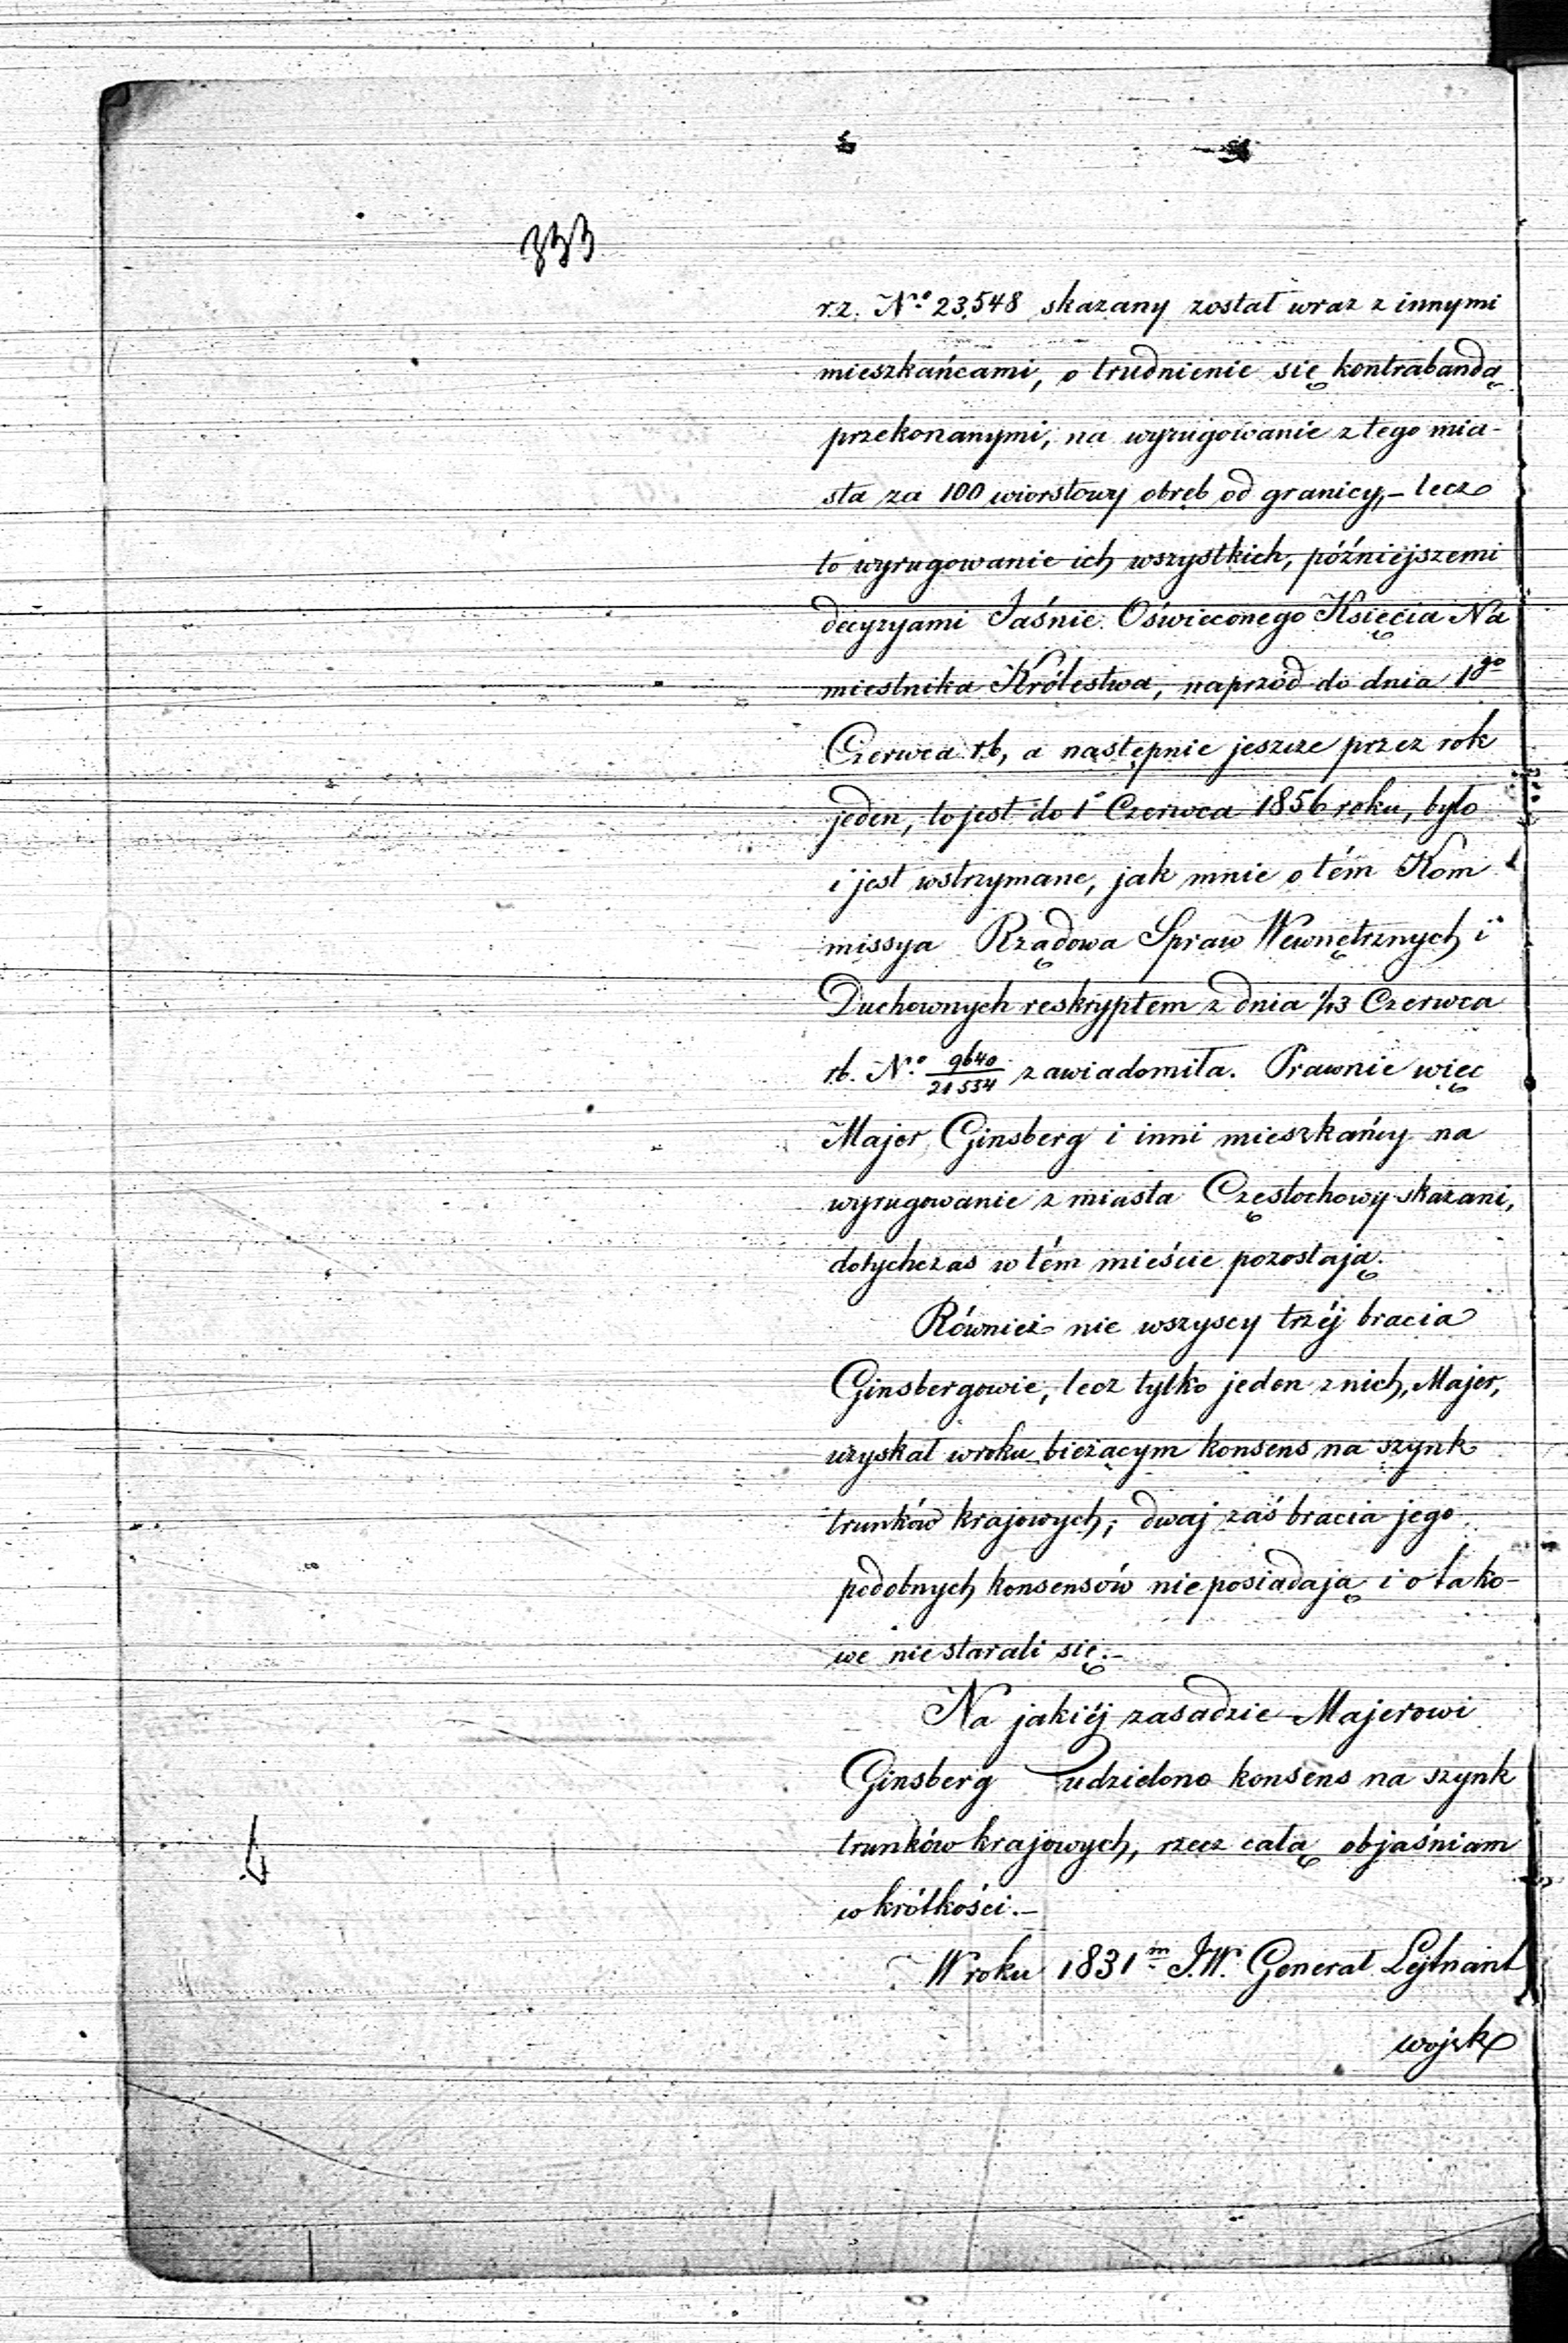 333
r.z. N.º 23,548 skazany został wraz z innymi
mieszkańcami, o trudnienie się kontrabandą
przekonanymi, na wyrugowanie z tego mia-
sta za 100 wiorstowy obręb od granicy,- lecz
to wyrugowanie ich wszystkich, późniejszemi
decyzyami Jaśnie Oświeconego Księcia Na
miestnika Królestwa, naprzód do dnia 1go
Czerwca rb, a następnie jeszcze przez rok
jeden, to jest do 1º Czerwca 1856 roku, było
i jest wstrzymane, jak mnie o tém Kom
missya Rządowa Spraw Wewnętrznych i
Duchownych reskryptem z dnia 1/13 Czerwca
rb. N.º 9640/21534 zawiadomiła. Prawnie więc
Majer Ginsberg i inni mieszkańcy na
wyrugowanie z miasta Częstochowy skazani,
dotychczas w tém mieście pozostają.
Również nie wszyscy trzéj bracia
Ginsbergowie, lecz tylko jeden z nich, Majer,
uzyskał w roku bieżącym konsens na szynk
trunków krajowych; dwaj zaś bracia jego
podobnych konsensów nie posiadają i o tako-
we nie starali się.-
Na jakiéj zasadzie Majerowi
Ginsberg udzielono konsens na szynk
trunków krajowych, rzecz całą objaśniam
w krótkości.-
W roku 1831m J.W. Generał Lejtnant
wojsk